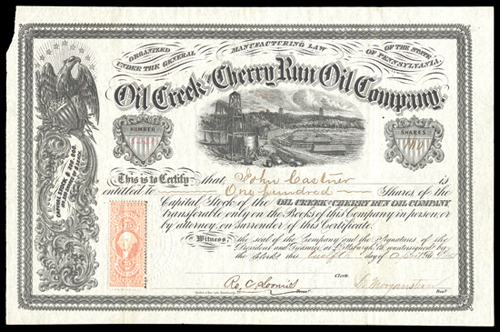 ORGANIZED UNDER THE GENERAL MANUFACTURING LAW OF THE STATE OF PENNSYLVANIA.
Oil Creek & Cherry Run Oil Company.
NUMBER
SHARES
100
This is to Certify that John Castner is
entitled to One hundred Shares of the
Capital Stock of the OIL CREEK & CHERRY RUN OIL COMPANY
transferable only on the Books of this Company in person or
by attorney, on surrender of this Certificate.
Witness, the seal of the Company and the Signatures of the
President and Treasurer at Pittsburgh, Pa. countersigned by
the Clerk this day of
Clerk.
Treasr.
Prest.